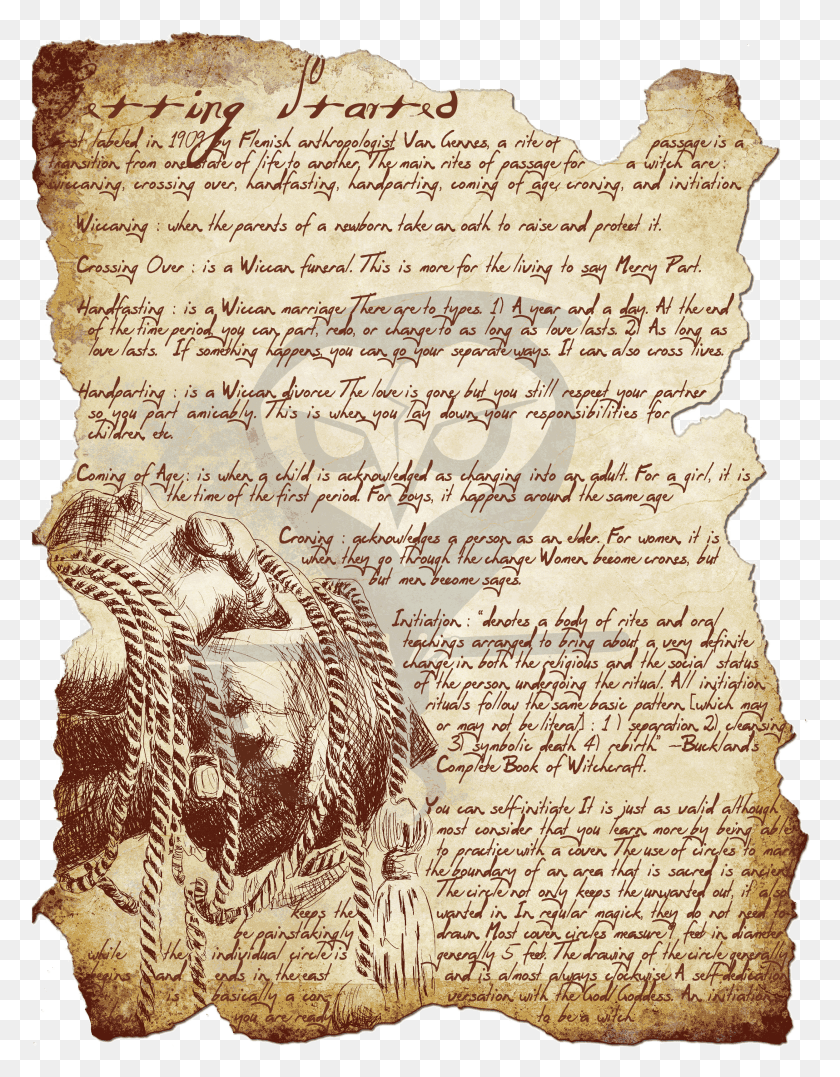 Getting Started
First labeled in 1909 by Flemish anthropologist Van Gennes, a rite of passage is a
transition from one state of life to another, The main rites of passage for a witch are :
wiccaning, crossing over, handfasting, handparting, coming of age, croning, and initiation
Wiccaning : when the parents of a newborn take an oath to raise and protect it.
Crossing Over : is a Wiccan funeral. This is more for the living to say Merry Part.
Handfasting : is a Wiccan marriage There are to types. 1) A year and a day. At the end
of the time period, you can part, redo, or change to as long as love lasts. 2) As long as
love lasts. If something happens, you can go your separate ways. It can also cross lives.
Handparting : is a Wiccan divorce The love is gone, but you still respect your partner
so you part amicably. This is when you lay down your responsibilities for
children, etc.
Coming of Age : is when a child is acknowledged as changing into an adult. For a girl, it is
the time of the first period. For boys, it happens around the same age
Croning : acknowledges a person as an elder. For women, it is
when they go through the change Women become crones, but
but men become sages.
Initiation : "denotes a body of rites and oral
teachings arranged to bring about a very definite
change in both the religious and the social status
of the person undergoing the ritual. All initiation
rituals follow the same basic pattern [which may
or may not be literal] : 1 ) separation 2) cleansing
3) symbolic death 4) rebirth" —Buckland's
Complete Book of Witchcraft.
You can self-initiate It is just as valid although
most consider that you learn more by being able
to practice with a coven. The use of circles to mark
the boundary of an area that is sacred is ancient
The circle not only keeps the unwanted out, it also
keeps the wanted in. In regular magick, they do not need to
be painstakingly drawn. Most coven circles measure 9 feet in diameter
while the individual circle is generally 5 feet. The drawing of the circle generally
begins and ends in the east and is almost always clockwise A self-dedication
is basically a con- versation with the God/Goddess. An initiation
you are ready to be a witch